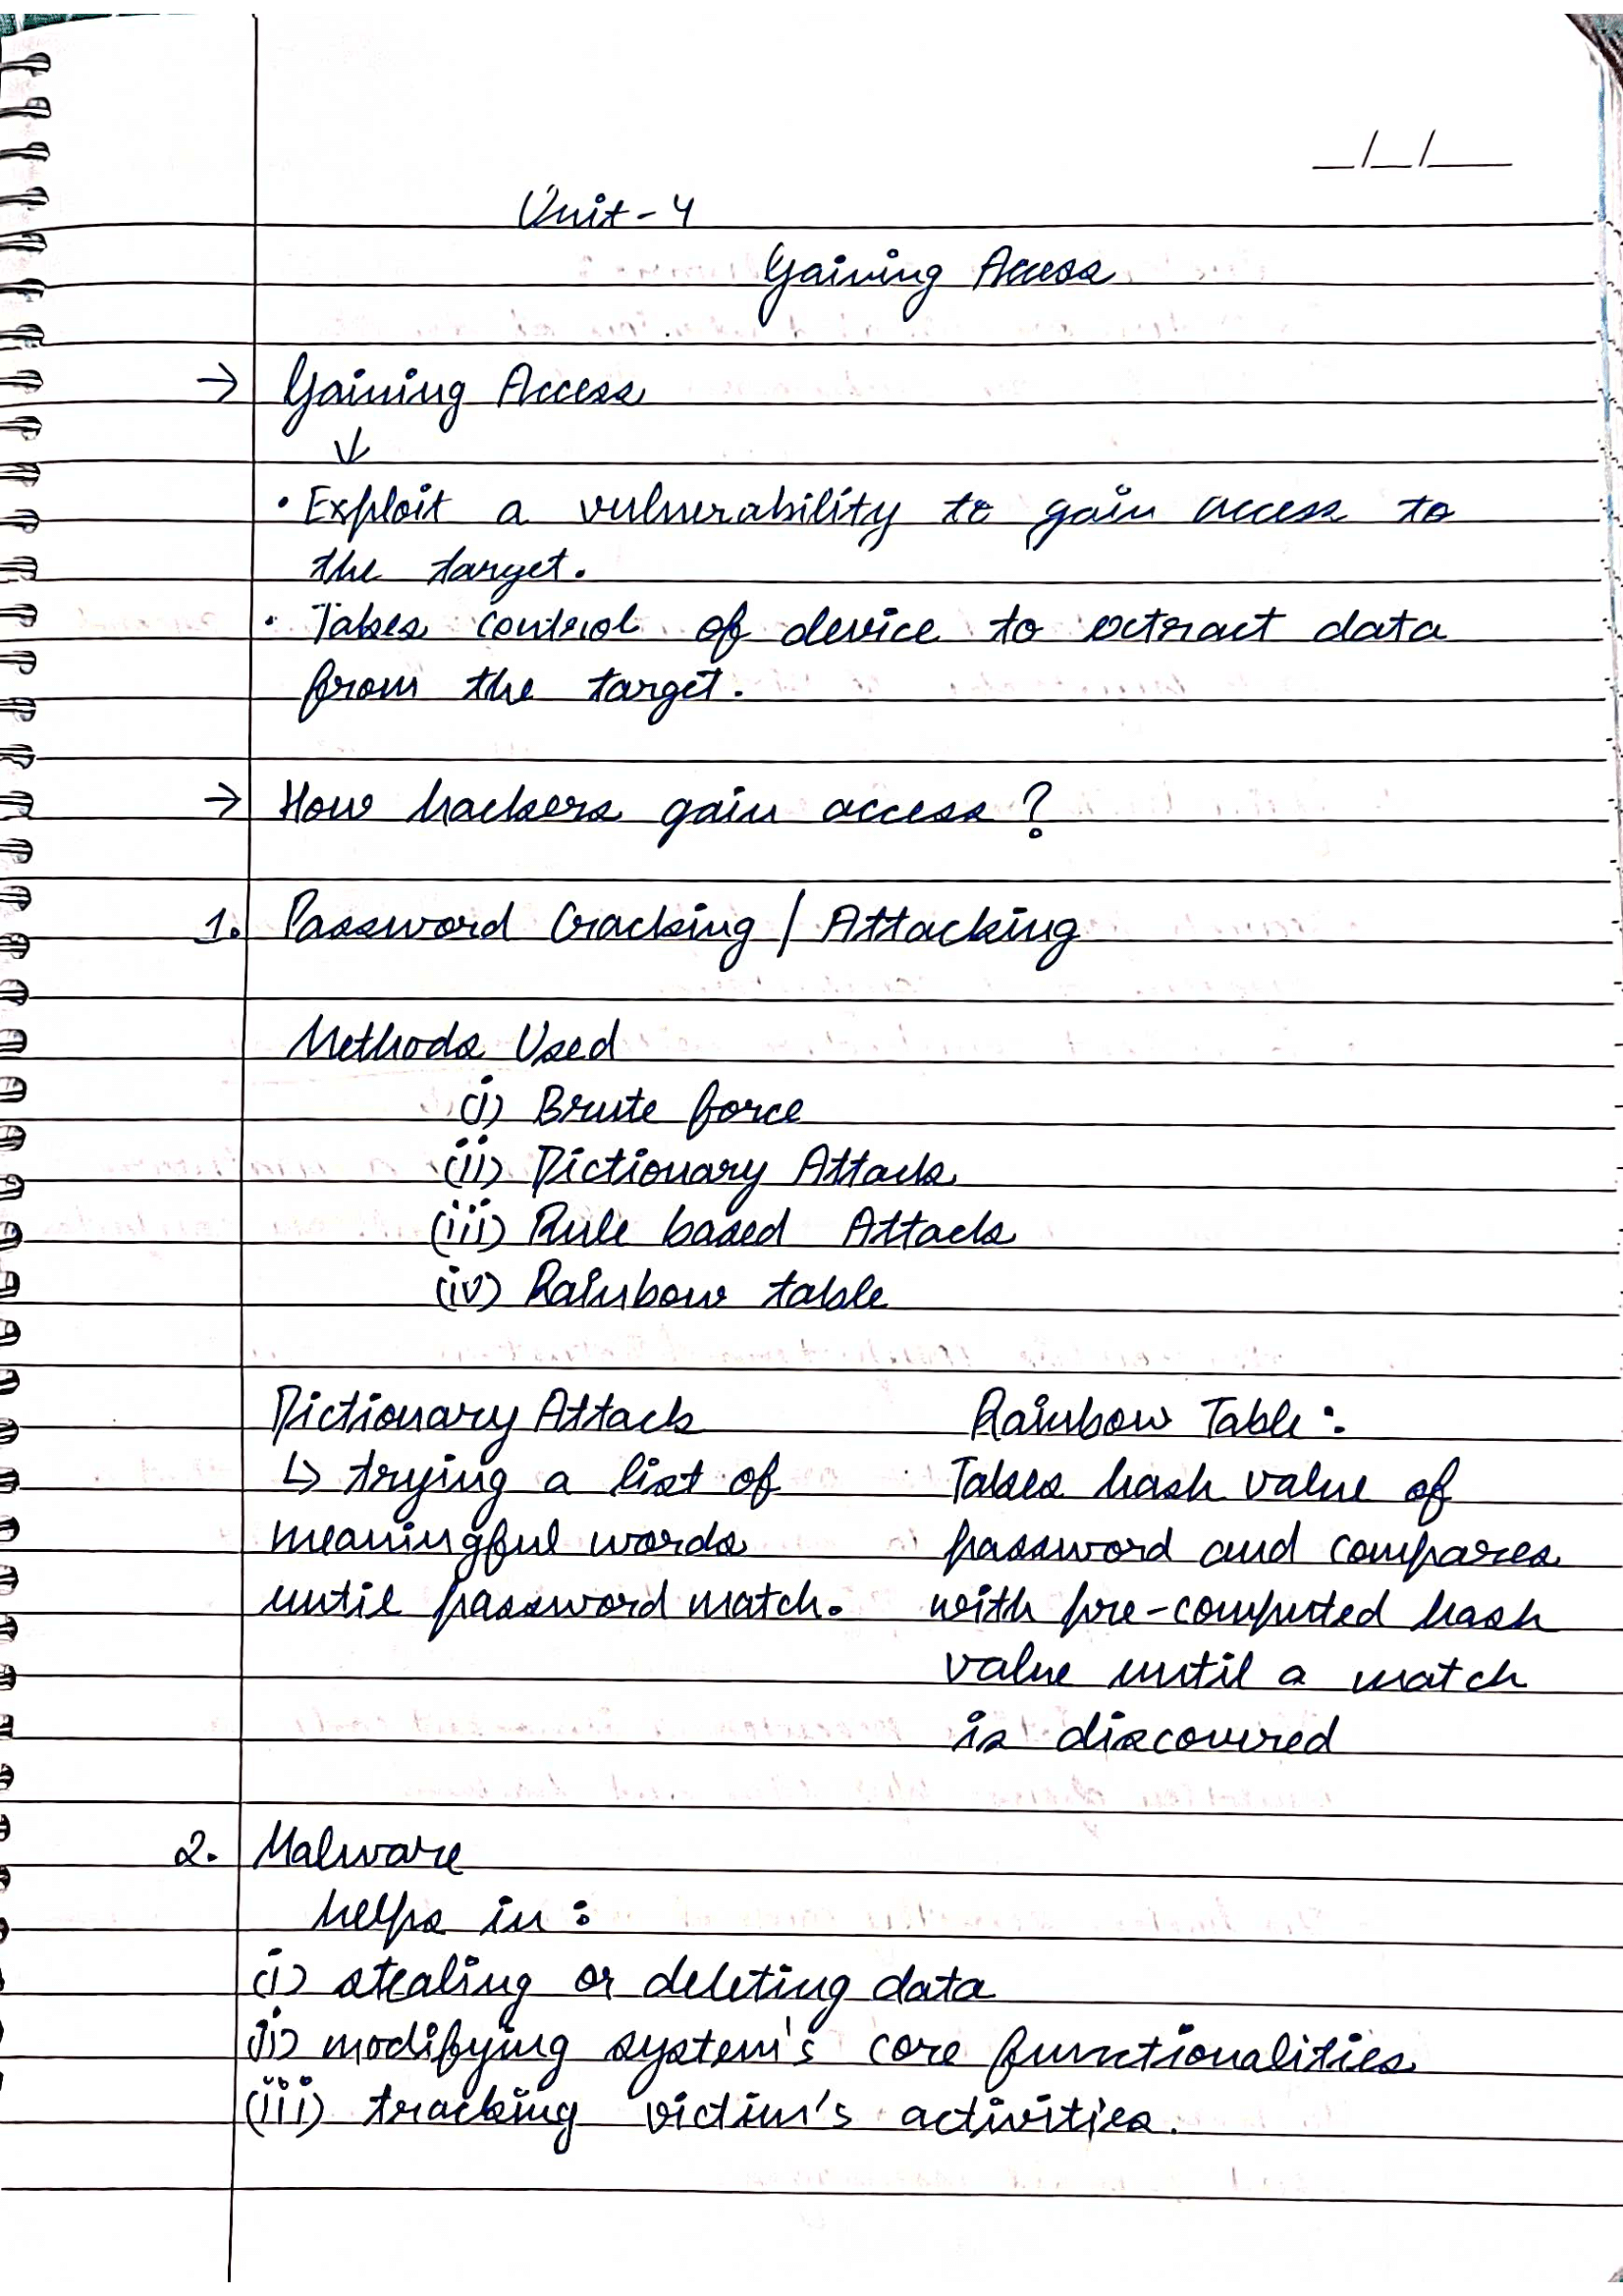 _/_/__
Unit-4
Gaining Access
→ Gaining Access
↓
• Exploit a vulnerability to gain access to
the target.
• Takes control of device to extract data
from the target.
→ How hackers gain access?
1. Password Cracking / Attacking
Methods Used
(i) Brute force
(ii) Dictionary Attack
(iii) Rule based Attack
(iv) Rainbow table
Dictionary Attack
↳ trying a list of
meaningful words
until password match.
Rainbow Table:
Takes hash value of
password and compares
with pre-computed hash
value until a match
is discovered
2. Malware
helps in:
(i) stealing or deleting data
(ii) modifying system's core functionalities
(iii) tracking victim's activities.